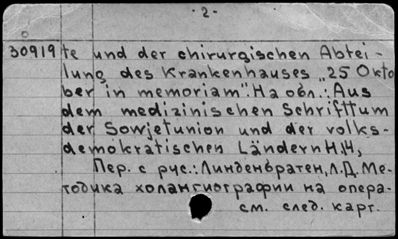 - 2 -
30919 te und der chirurgischen Abtei-
lung des Krankenhauses „25 Okto
ber in memoriam". На обл.: Aus
dem medizinischen Schrifttum
der Sowjetunion und der volks-
demokratischen Ländern H.H,
Пер. с рус.: Линденбратен, Л.Д. Ме-
тодика холангиографии на опера-
см. след. карт.